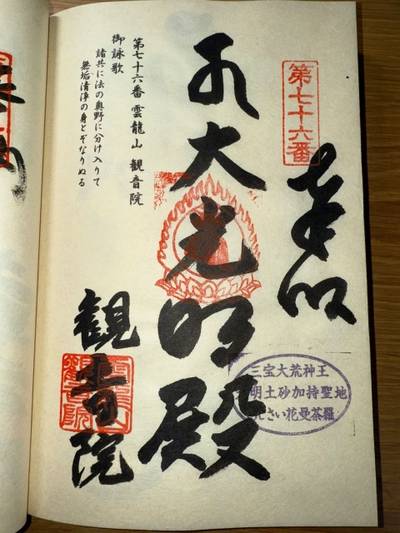 第七十六番
奉拝
三宝大荒神王
明土砂加持聖地
さい花曼荼羅
大光明殿
第七十六番 雲龍山 観音院
御詠歌
諸共に法の奥野に分け入りて
無垢清浄の身とぞなりぬる
観音院